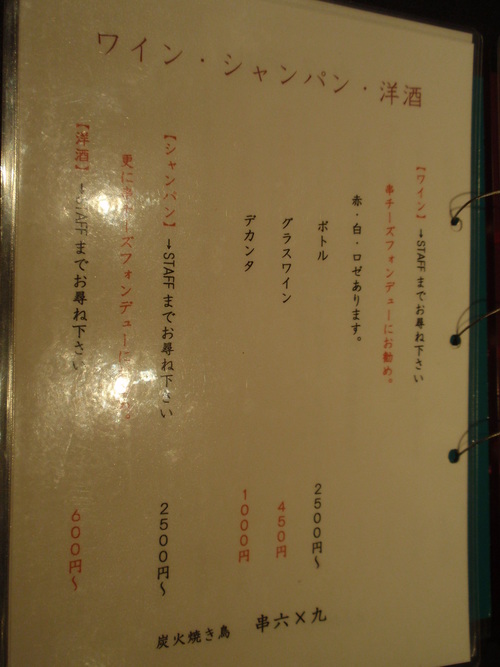 ワイン・シャンパン・洋酒
【ワイン】→STAFFまでお尋ね下さい
串チーズフォンデューにお勧め。
赤・白・ロゼあります。
ボトル 2500円～
グラスワイン 450円
デカンタ 1000円
【シャンパン】→STAFFまでお尋ね下さい 2500円～
更に串チーズフォンデューに
【洋酒】→STAFFまでお尋ね下さい 600円～
炭火焼き鳥 串六×九